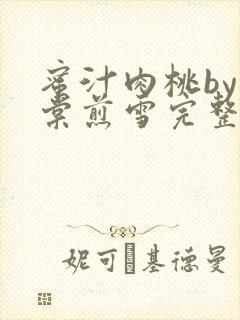 蜜汁肉桃by
棠煎雪完整
妮可�基德曼